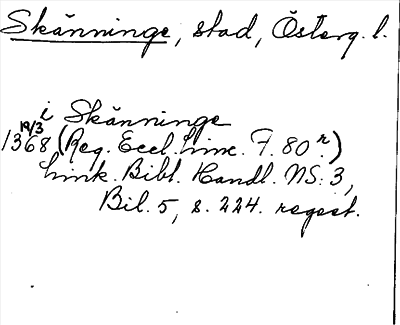 Skänninge, stad, Österg. l.
i Skänninge
19/3
1368 (Reg. Eccl. Linc. F. 80 r.)
Link. Bibl. Handl. NS. 3,
Bil. 5, s. 224. regest.